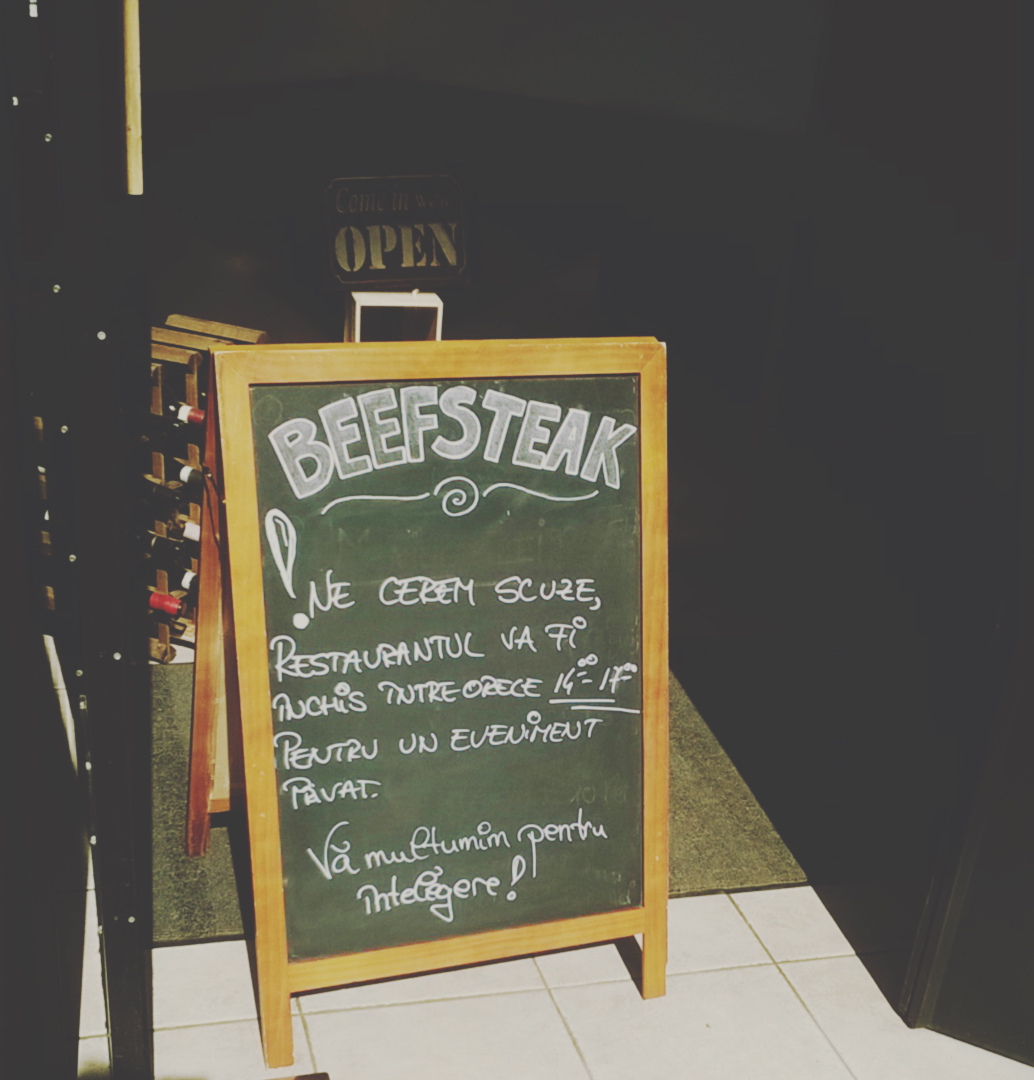 Come in we're
OPEN
BEEFSTEAK
! NE CEREM SCUZE,
RESTAURANTUL VA FI
ÎNCHIS ÎNTRE ORELE 14⁰⁰-17⁰⁰
PENTRU UN EVENIMENT
PRIVAT.
Vă mulțumim pentru
înțelegere!